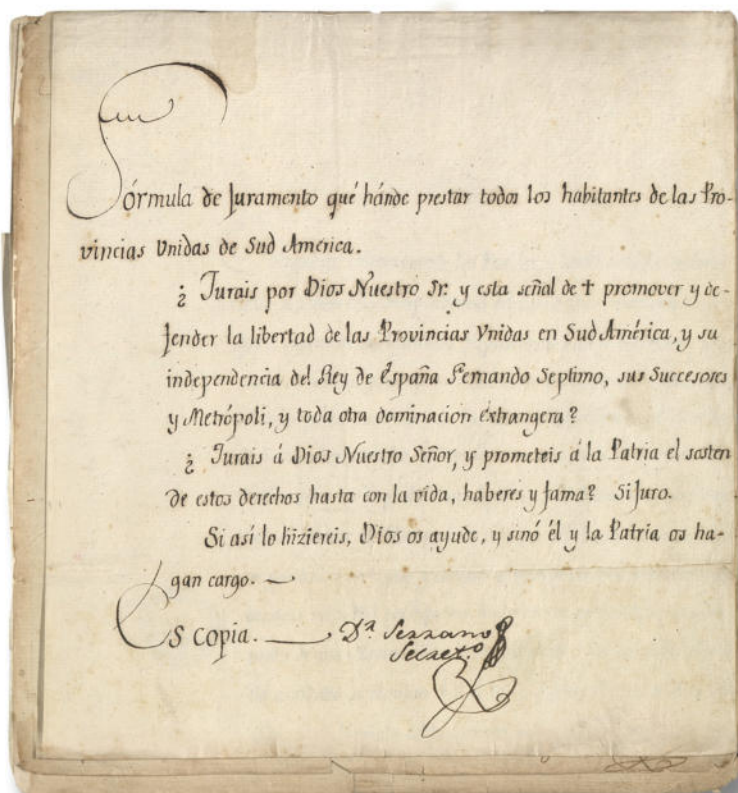 Fórmula de Juramento qué hánde prestar todos los habitantes de las Pro-
vincias Vnidas de Sud America.
¿ Jurais por Dios Nuestro Sr. y esta señal de † promover y de-
fender la libertad de las Provincias Vnidas en Sud América, y su
independencia del Rey de España Fernando Septimo, sus Successores
y Metrópoli, y toda otra dominacion extrangera?
¿ Jurais á Dios Nuestro Señor, y prometeis á la Patria el sosten
de estos derechos hasta con la vida, haberes y fama? Si Juro.
Si así lo hiziereis, Dios os ayude, y sinó él y la Patria os ha-
gan cargo.
Es copia. — Dr. Serrano
Secret.o